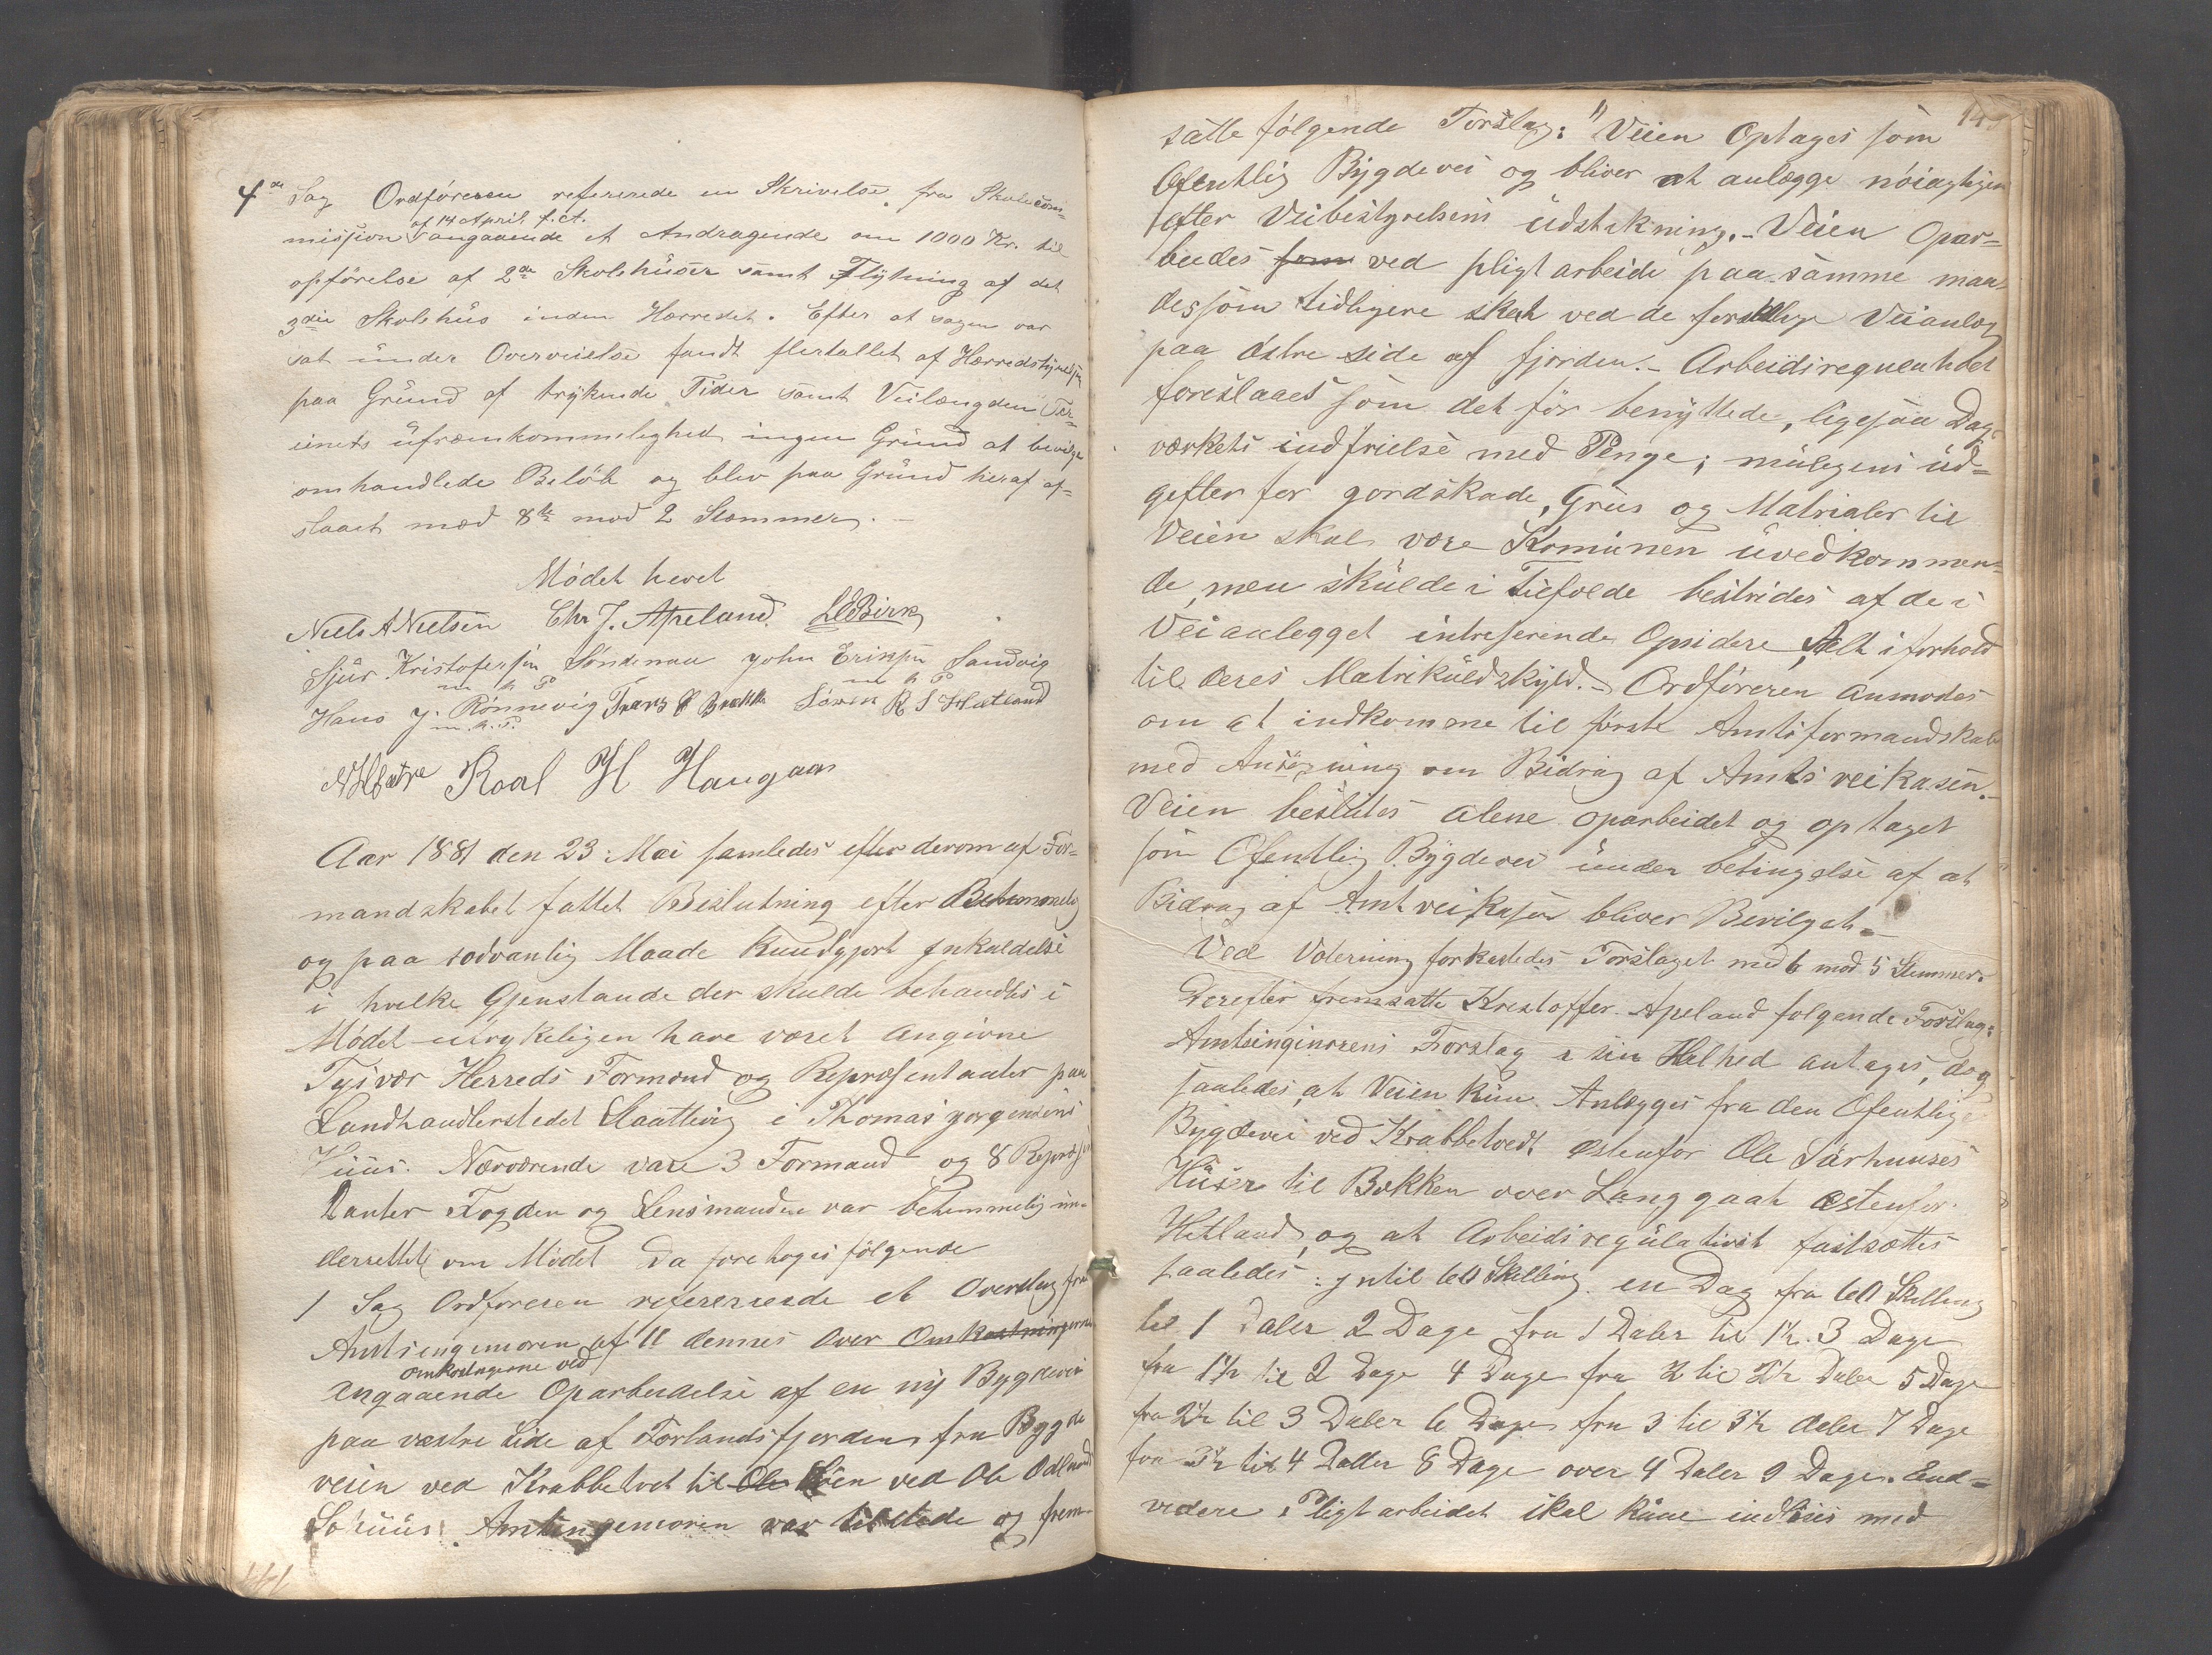 4de Sag Ordföreren refererede en Skrivelse fra Skolecom-
af 14 April f.ct.
mission angaaende et Andragende om 1000 Kr. til
opförelse af 2de Skolehuser samt Flytning af det
3die Skolehus inden Herredet. Efter at sagen var
sat under Overveielse fandt flertallet af Herredstyrelsen
paa Grund af trykende Tider samt Veilængden Ter-
reinets ufremkommelighed ingen Grund at bevilge
omhandlede Belöb og blev paa Grund heraf af-
slaaet med 8te mod 2 Stemmer. —
Mödet hevet
Niels A Nielsen Chr J. Apeland. LEBirk
Sjur Kristofersen Söndenaa John Eriksen Sandvig
m p P m p P
Hans J. Rönnevig Søren R S Hetland
m. p. P.
Roal H Haugaas
Aar 1881 den 23 Mai samledes efter derom af For-
mandskabet fattet Beslutning efter Betimmelig
og paa sedvanlig Maade Kundgjort Inkaldelse
i hvilke Gjenstande der skulde behandles i
Mödet udrykeligen have været angivne
Tysvær Herreds Formænd og Repræsentanter paa
Landhandlerstedet Slaattevig i Thomas Jorgensens
Huus. Nærværende vare 3 Formænd og 8 Repræsen
tanter Fogden og Lensmanden var betimmelig un-
derrettet om Mödet Da foretoges fölgende
1 Sag Ordforeren refererede et Overslag fra
Amtsingeniøren af 11 dennes over Omkostningerne
omkostngerne ved
angaaende Oparbeidelse af en ny Bygdevei
paa vestre Side af Førlandsfjorden fra Bygde
veien ved Krabbetvet til Ole Søen ved Ole Odland
Söhuus. Amtingeniøren var tilstede og frem-
145
satte følgende Forslag: "Veien Optages som
Ofentlig Bygdevei og bliver at anlægge nöiagtigen
efter Veibestyrelsens udstikning. – Veien Opar-
beides som ved pligtarbeide paa samme maa-
de som tidligere skeet ved de forskellige Veianlæg
paa østre side af fjorden. – Arbeidsreguentivet
foreslaaes som det för benyttede, ligesaa Dags
værkets indfrielse med Penge; muligens ud-
gifter for jordskade, Grus og Matrialer til
Veien skal være Komunen uvedkommen-
de, men skulde i Tilfælde bestrides af de i
Veianlegget intreserende Opsidere, Alt i forhold
til deres Matrikulskyld. – Ordföreren anmodes
om at indkomme til förste Amtsformandskab
med Ansögning om Bidrag af Amtsveikasen. –
Veien besluttes alene oparbeidet og optaget
som Ofentlig Bygdevei under betingelse af at
Bidrag af Amtveikasen bliver Bevilget. –
Ved Votering forkastedes Forslaget med 6 mod 5 Stemmer.
Derefter fremsatte Kristoffer Apeland folgende Forslag:
Amtsinginørens Forslag i sin Helhed antages, dog
saaledes, at Veien kun Anlegges fra den Ofentlige
Bygdevei ved Krabbetvedt østenfor Ole Sørhuuses
Huser til Bækken over Langgaat østenfor
Hetland, og at Arbeidsregulativet fastsættes
saaledes: Intil 60 Skilling en Dag fra 60 Skilling
til 1 Daler 2 Dage fra 1 Daler til 1½ 3 Dage
fra 1½ til 2 Dage 4 Dage fra 2 til 2½ Daler 5 Dage
fra 2½ til 3 Daler 6 Dage fra 3 til 3½ daler 7 Dage
fra 3½ til 4 Daller 8 Dage over 4 Daler 9 Dage. End-
videre Pligtarbeidet skal kune indløses med